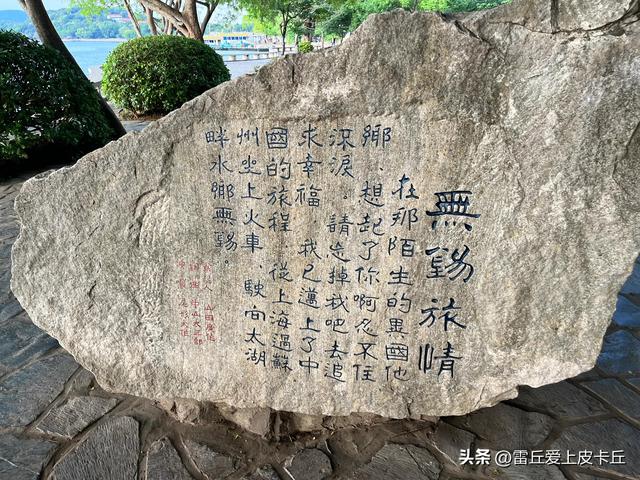 無錫旅情
在那陌生的異國他
鄉、想起了你啊忍不住
流淚。請忘掉我吧去追
求幸福、我已邁上了中
國的旅程、從上海過蘇
州坐上火車、駛向太湖
畔水鄉無錫。
人 山田
中山大三郎
尾形大作
头条 @雷丘爱上皮卡丘